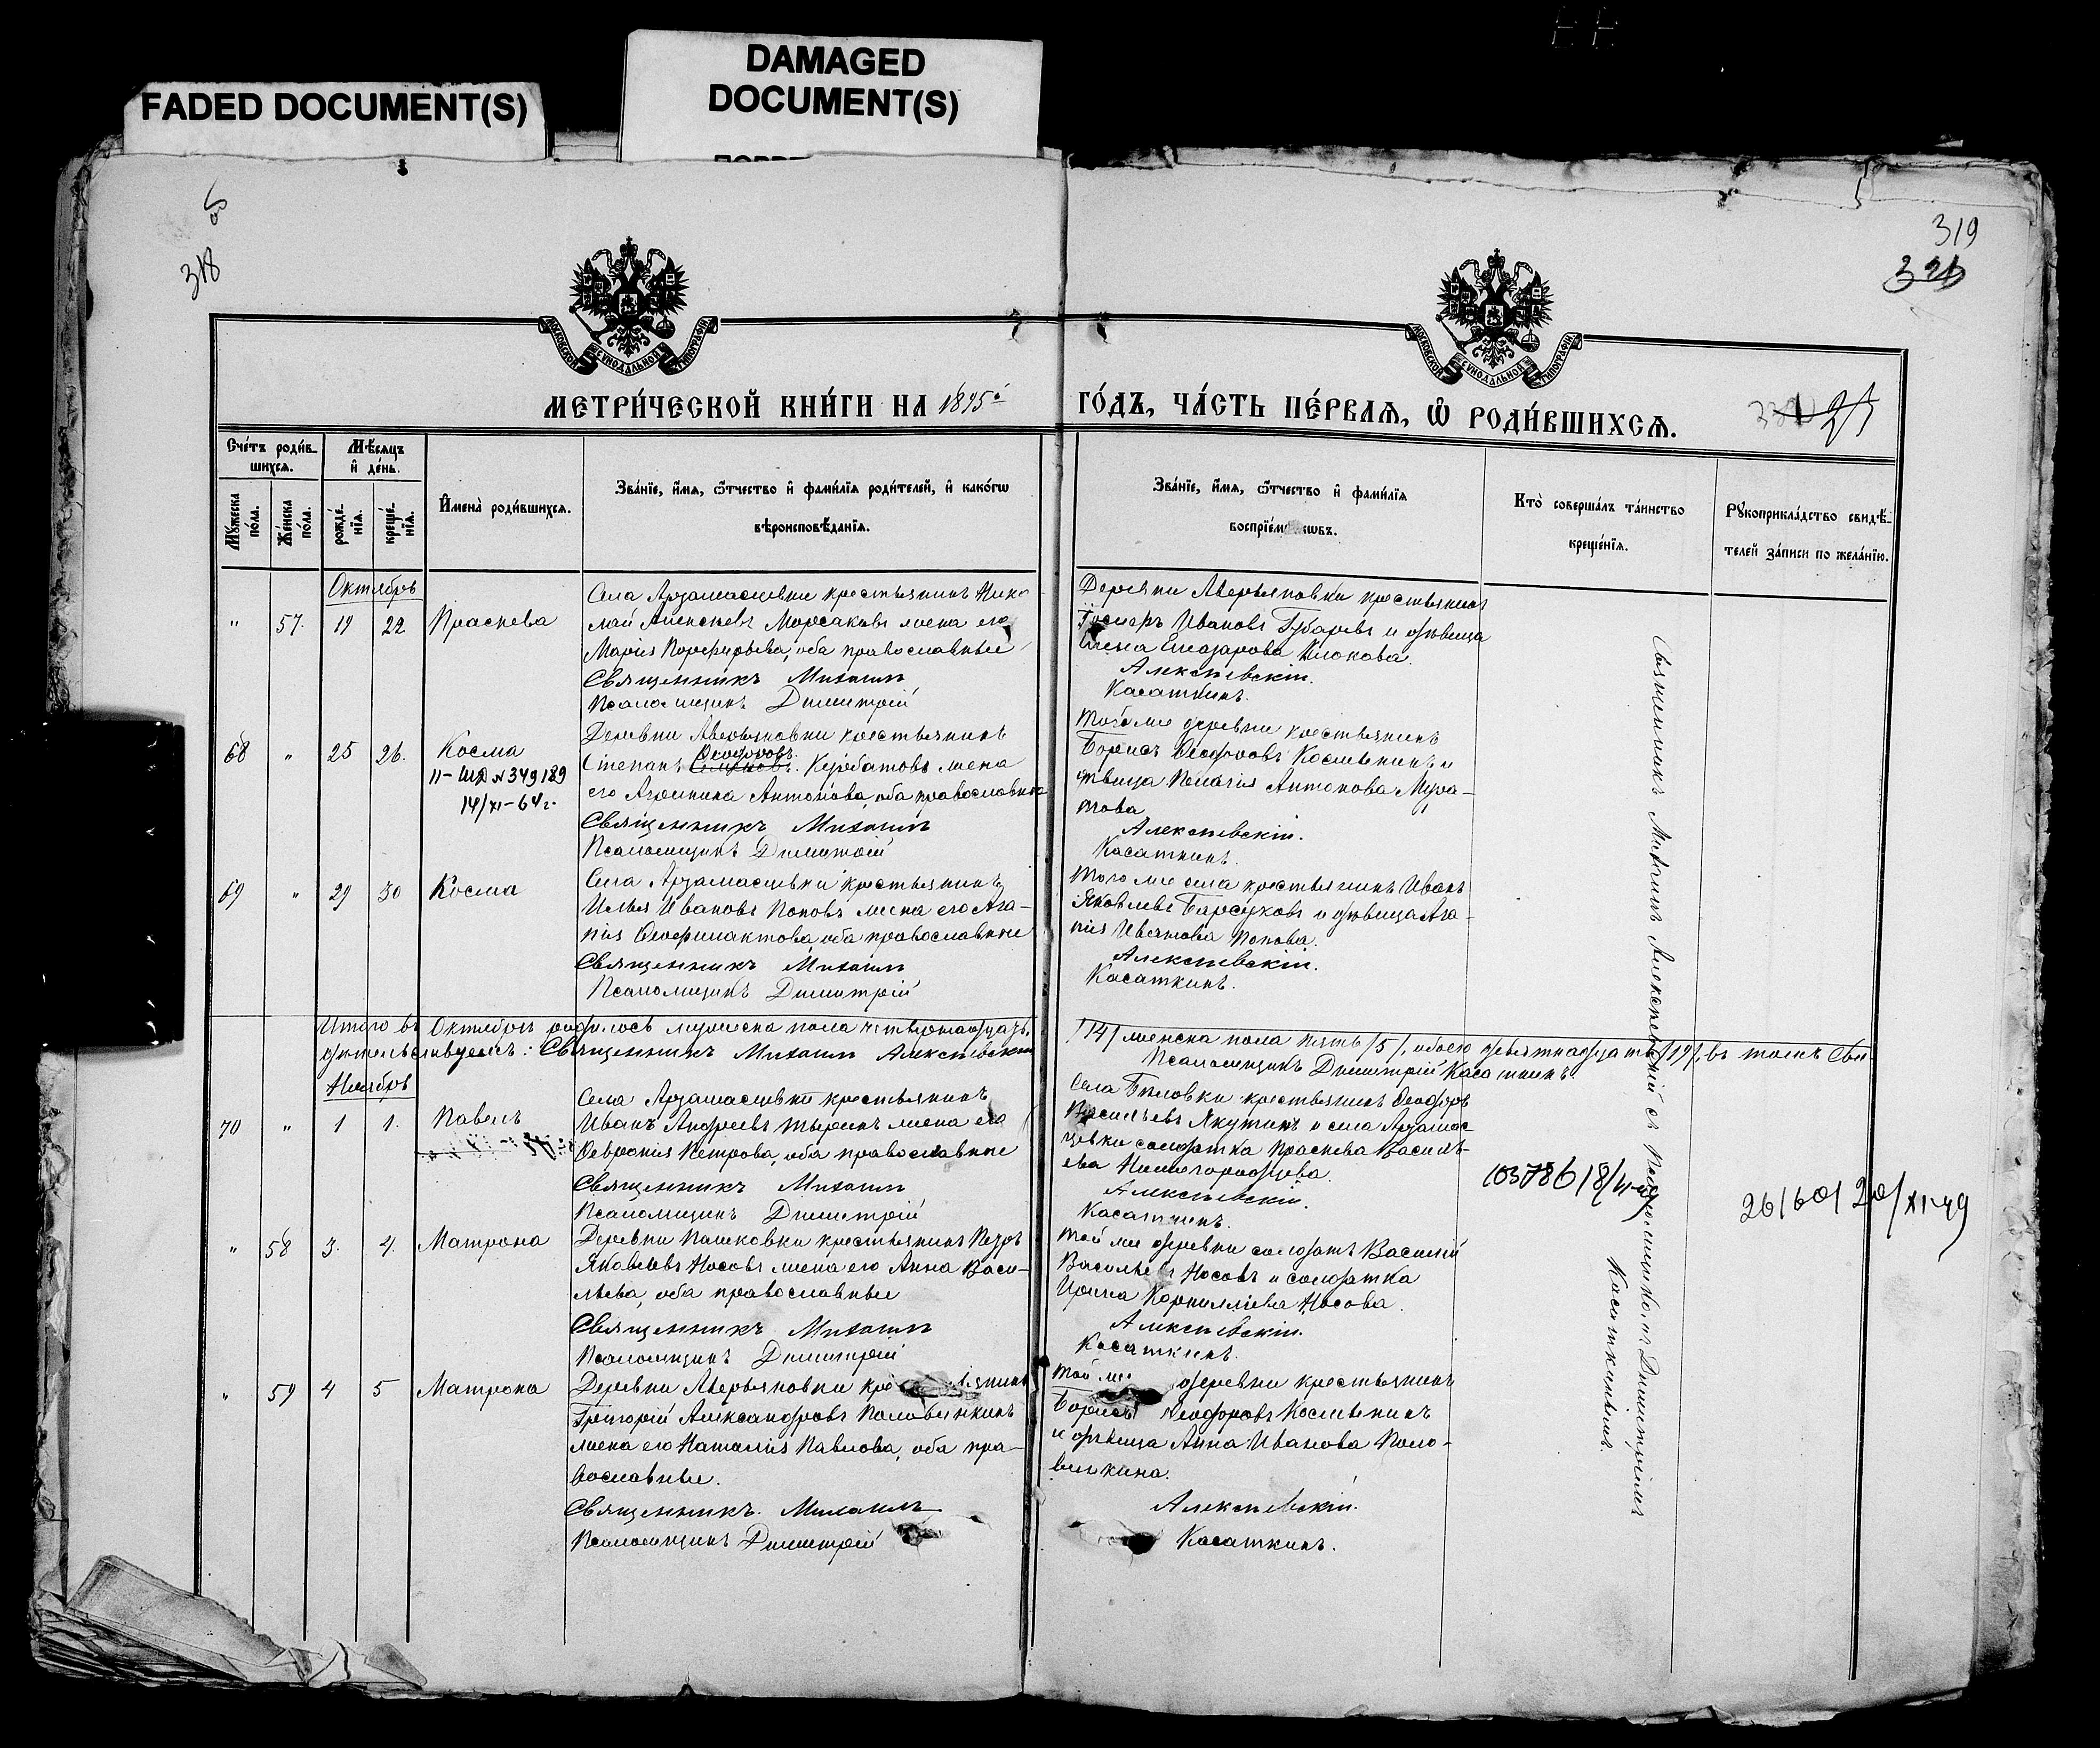 FADED DOCUMENT(S)
DAMAGED
DOCUMENT(S)
318
319
МОСКОВСКОЙ СѴНОДАЛЬНОЙ ТИПОГРАФІИ
МОСКОВСКОЙ СѴНОДАЛЬНОЙ ТИПОГРАФІИ
МЕТРИ́ЧЕСКОЙ КНИ́ГИ НА 1895й
ГО́ДЪ, ЧА́СТЬ ПЕ́РВАѦ, Ѡ҆ РОДИ́ВШИХСѦ.
Сче́тъ роди́в-
шихсѧ.
Мꙋ́жеска
по́ла.
Же́нска
по́ла.
Мѣ́сѧцъ
и҆ де́нь.
рожде́-
нїѧ.
креще́-
нїѧ.
И҆мена̀ роди́вшихсѧ.
Зва́нїе, и҆́мѧ, ѻ҆́тчество и҆ фами́лїѧ роди́телей, и҆ како́гѡ
вѣроисповѣ́данїѧ.
Зва́нїе, и҆́мѧ, ѻ҆́тчество и҆ фами́лїѧ
воспрїе́м ѡвъ.
Кто̀ соверша́лъ та́инство
креще́нїѧ.
Рꙋкоприкла́дство свидѣ́-
телей за́писи по жела́нїю.
Октябрь
" 57. 19 22 Праскева
Села Арзамасцевки крестьянинъ Нико-
лай Алексѣевъ Марсаковъ жена его
Марія Порфирьева, оба православные
Священникъ Михаилъ
Псаломщикъ Димитрій
Деревни Аверьяновки крестьянинъ
Ивановъ Губаревъ и дѣвица
Елена Елизарова
Алексѣевскій.
Касаткинъ.
68 " 25 26. Косма
14/XI-64г.
Деревни Аверьяновки крестьянинъ
Степанъ Ѳеодоровъ Курбатовъ жена
его Агрипина Антонова, оба православные
Священникъ Михаилъ
Псаломщикъ Димитрій
Той же деревни крестьянинъ
Борисъ Ѳеодоровъ Космынинъ и
дѣвица Пелагія Антонова Мура-
това
Алексѣевскій.
Касаткинъ.
69 " 29 30 Косма
Села Арзамасцевки крестьянинъ
Илья Ивановъ Поповъ жена его Ага-
пія Ѳеофилактова, оба православные
Священникъ Михаилъ
Псаломщикъ Димитрій
Того же села крестьянинъ Иванъ
Яковлевъ Барсуковъ и дѣвица Ага-
пія Иванова Попова.
Алексѣевскій.
Касаткинъ.
Итого въ Октябрѣ родилось мужеска пола четырнадцать
/14/ женска пола пять /5/, обоего девятнадцать /19/, въ томъ сви-
дѣтельствуемъ: Священникъ Михаилъ Алексѣевскій
Псаломщикъ Димитрій Касаткинъ.
Ноябрь
70 " 1 1. Павелъ
Села Арзамасцевки крестьянинъ
Иванъ Андреевъ Тыринъ жена его
Ѳевронія Петрова, оба православные
Священникъ Михаилъ
Псаломщикъ Димитрій
Села Бѣловки крестьянинъ Ѳеодоръ
Васильевъ Якутинъ и села Арзамас-
цевки солдатка Праскева Василь-
ева Нижегородцева.
Алексѣевскій.
Касаткинъ.
" 58 3. 4. Матрона
Деревни Пашковки крестьянинъ Петръ
Яковлевъ Носовъ жена его Анна Васи-
льева, оба православные
Священникъ Михаилъ
Псаломщикъ Димитрій
Той же деревни солдатъ Василій
Васильевъ Носовъ и солдатка
Ирина Корнилліева Носова.
Алексѣевскій.
Касаткинъ.
" 59 4 5 Матрона
Деревни Аверьяновки кре янинъ
Григорій Александровъ Половинкинъ
жена его Наталія Павлова, оба пра-
вославные.
Священникъ Михаилъ
Псаломщикъ Димитрій
Той же деревни крестьянинъ
Борисъ Ѳеодоровъ Космынинъ
и дѣвица Анна Иванова Поло-
винкина.
Алексѣевскій.
Касаткинъ.
Священникъ Михаилъ Алексѣевскій съ Псаломщикомъ Димитріемъ
Касаткинымъ.